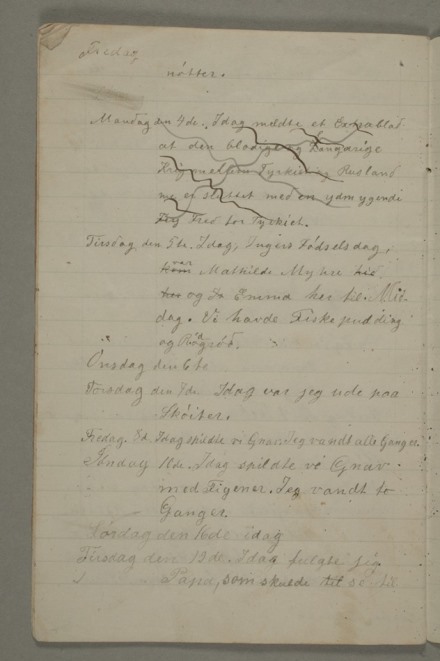 Fredag,
nötter.
Mandag den 4de. Idag mældte et Extrablad
at den blodige og langvarige
Krig mellem Tyrkiet og Rusland
er sluttet med en ydmygende
Fred for Tyrkiet.
Tirsdag, den 5te. Idag, Ingers Födselsdag,
var Mathilde Myhre
og Emma her til Mid-
dag. Vi havde Fiskepudding
og Rögröd.
Onsdag den 6te
Torsdag den 7de. Idag var jeg ude paa
Sköiter.
Fredag. 8d. Idag spildte vi Gnav. Jeg vandt alle Ganger.
Idag spildte vi Gnav
med Figener. Jeg vandt to
Ganger.
Lördag den 16de idag
Tirsdag den 19de. Idag fulgte jeg
Papa, som skulde til